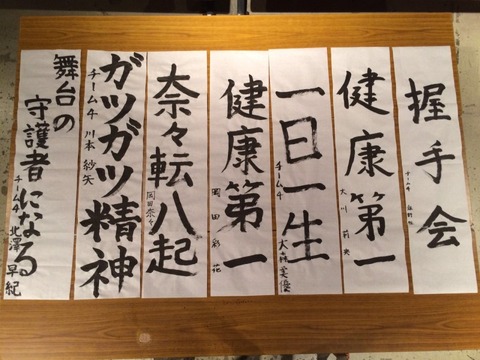 握手会
チーム4
健康第一
大川莉央
一日一生
チーム4 大森美優
健康第一
岡田彩花
奈々転八起
岡田奈々
ガツガツ精神
チーム4 川本紗矢
舞台の
守護者になる
チーム4 北澤早紀